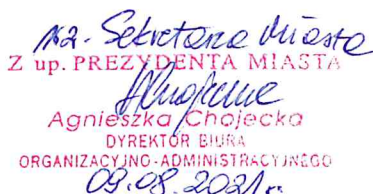 wz. Sekretarza Miasta
Z up. PREZYDENTA MIASTA
Agnieszka Chojecka
DYREKTOR BIURA
ORGANIZACYJNO-ADMINISTRACYJNEGO
09.08.2021 r.